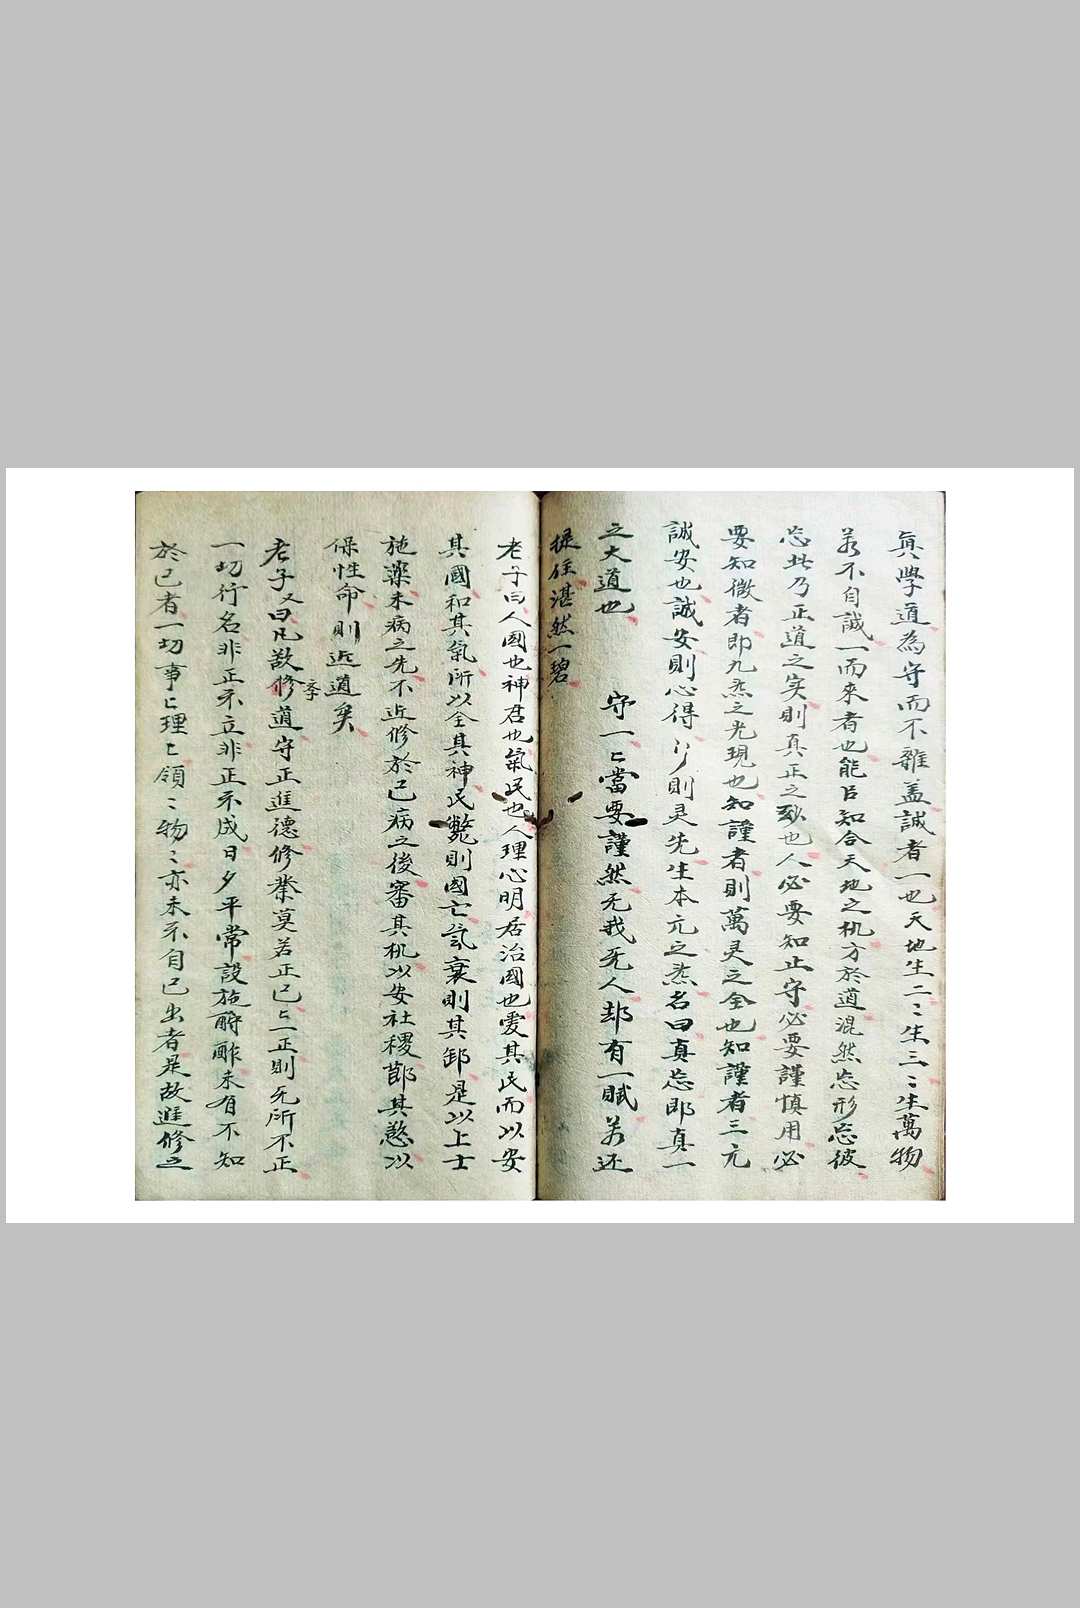 真學道為守而不雜盖誠者一也天地生二〻生三〻生萬物
若不自誠一而來者也能自知合天地之机方於道混然忘形忘彼
忘此乃正道之实則真正之也人必要知止守必要謹慎用必
要知微者即九炁之光現也知謹者則萬灵之全也知謹者三元
誠安也誠安則心得則灵先生本元之炁名曰真忘即真一
之大道也 守一〻當要謹然无我无人却有一賦若还
捉住湛然一碧
老子曰人國也神君也氣民也人理心明居治國也愛其民而以安
其國和其氣所以全其神民斃則國亡氣衰則其卸是以上士
施藥未病之先不近修於已病之後審其机以安社稷節其慾以
保性命則近道矣
老子又曰凡欲修道守正進德修業莫若正己〻一正則无所不正
一切行名非正不立非正不成日夕平常設施酧酢未有不知
於己者一切事〻理〻領〻物〻亦未不自己出者是故進修之